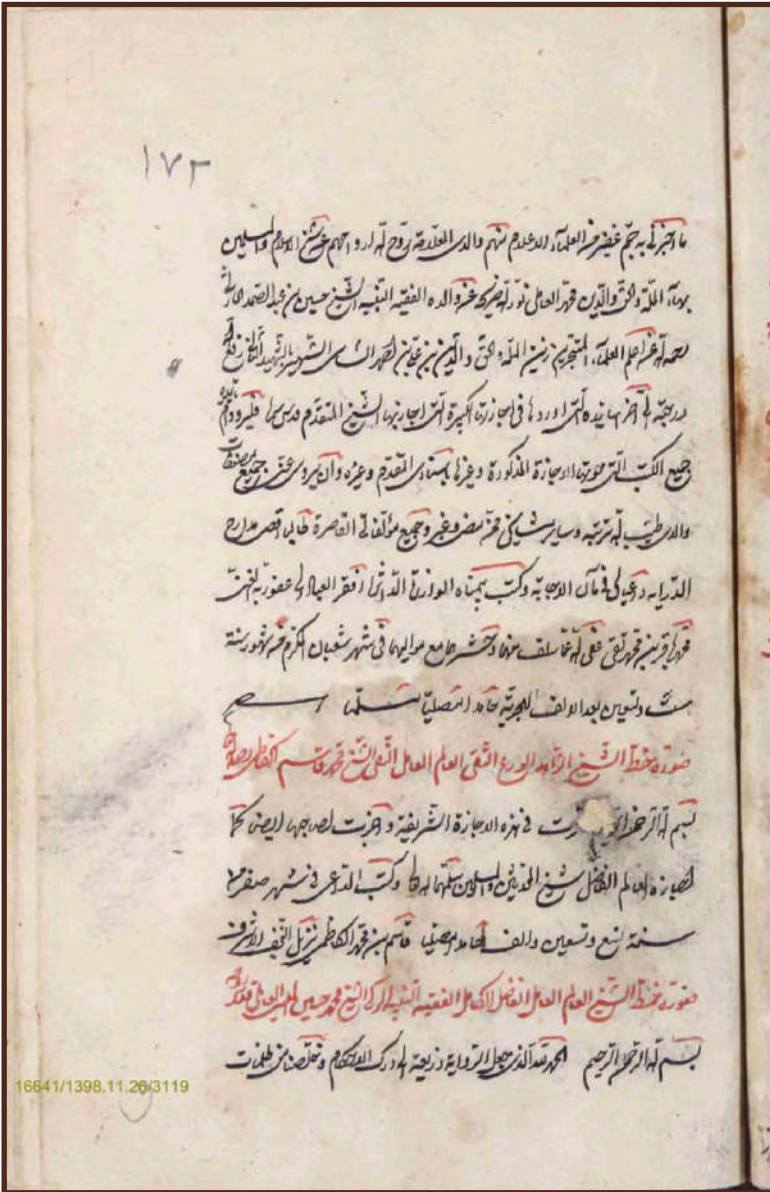 ١٧٢
ما اخبرنى به جم غفير من العلماء الاعلام منهم والدى العلامة روح الله ارواحهم عن شيخ الاسلام والمسلمين
بهاء الملة والحق والدين محمد العاملى نور الله ضريحه عن والده الفقيه النبيه الشيخ حسين بن عبد الصمد الحارثى
رحمه الله عن اعلم العلماء المتبحرين زين الملة والحق والدين بن على بن احمد الشامى الشهير بالشهيد الثانى رفع الله
درجته الى آخر اسانيده التى اوردها فى اجازتها الكبيرة التى اجاز بها الشيخ المتقدم قدس سرهما فليرو دام تأييده
جميع الكتب التى حوتها الاجازة المذكورة وغيرها باسنادى المتقدم وغيره وان يروى عنى جميع مصنفات
والدى طيب الله تربته وساير مشايخى ممن مضى وغبر وجميع مؤلفاتى القاصرة طالبا اقصى مدارج
الدراية داعيا لى فى مآن الاجابة وكتب بيمناه الوازرة الداثرة افقر العباد الى عفو ربه الغنى
محمد باقر بن محمد تقى عفى الله عما سلف منهما وحشرهما مع مواليهما فى شهر شعبان المكرم من شهور سنة
ست وتسعين بعد الالف الهجرية حامدا مصليا مسلما
صورة خط الشيخ الزاهد الورع التقى العالم العامل النقى الشيخ محمد قاسم الكاظمى
بسم الله الرحمن الرحيم فى هذه الاجازة الشريفة واجزت لصاحبها ايضا كما
اجازه العالم الفاضل شيخ المحدثين والمسلمين سلمهما الله تعالى وكتب الداعى فى شهر صفر
سنة تسع وتسعين والف حامدا مصليا قاسم بن محمد الكاظمى نزيل النجف الاشرف
صورة خط الشيخ العالم العامل الفاضل الكامل الفقيه النبيه الزكى الشيخ محمد حسين العاملى
بسم الله الرحمن الرحيم الحمد لله الذى جعل الرواية ذريعة الى درك الاحكام وتخلصنا من ظلمات
16641/1398.11.26/3119